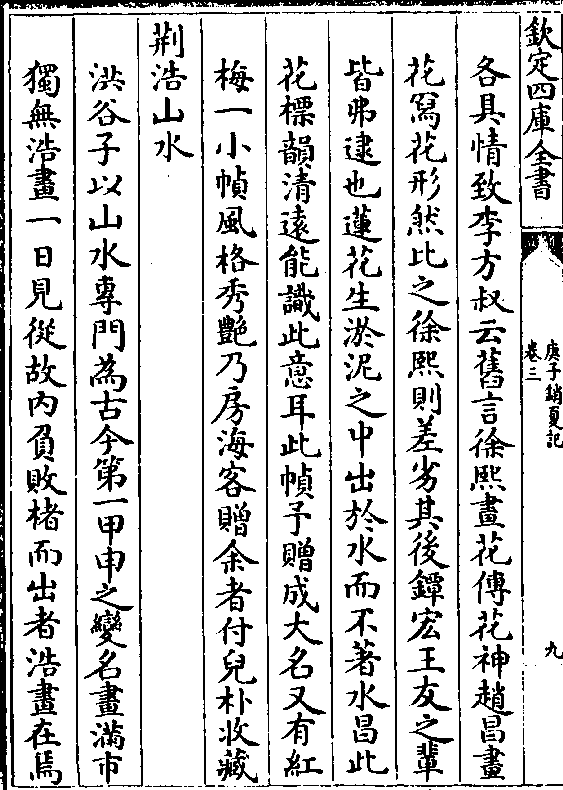 欽定四庫全書
庚子銷夏記
卷三
九
各具情致李方叔云舊言徐熙畫花傳花神趙昌畫
花寫花形然比之徐熙則差劣其後鐔宏王友之輩
皆弗逮也蓮花生淤泥之中出於水而不著水昌此
花標韻清遠能識此意耳此幀予贈成大名又有紅
梅一小幀風格秀艷乃房海客贈余者付兒朴收藏
荆浩山水
洪谷子以山水專門為古今第一甲申之變名畫滿市
獨無浩畫一日見從故内負敗楮而出者浩畫在焉